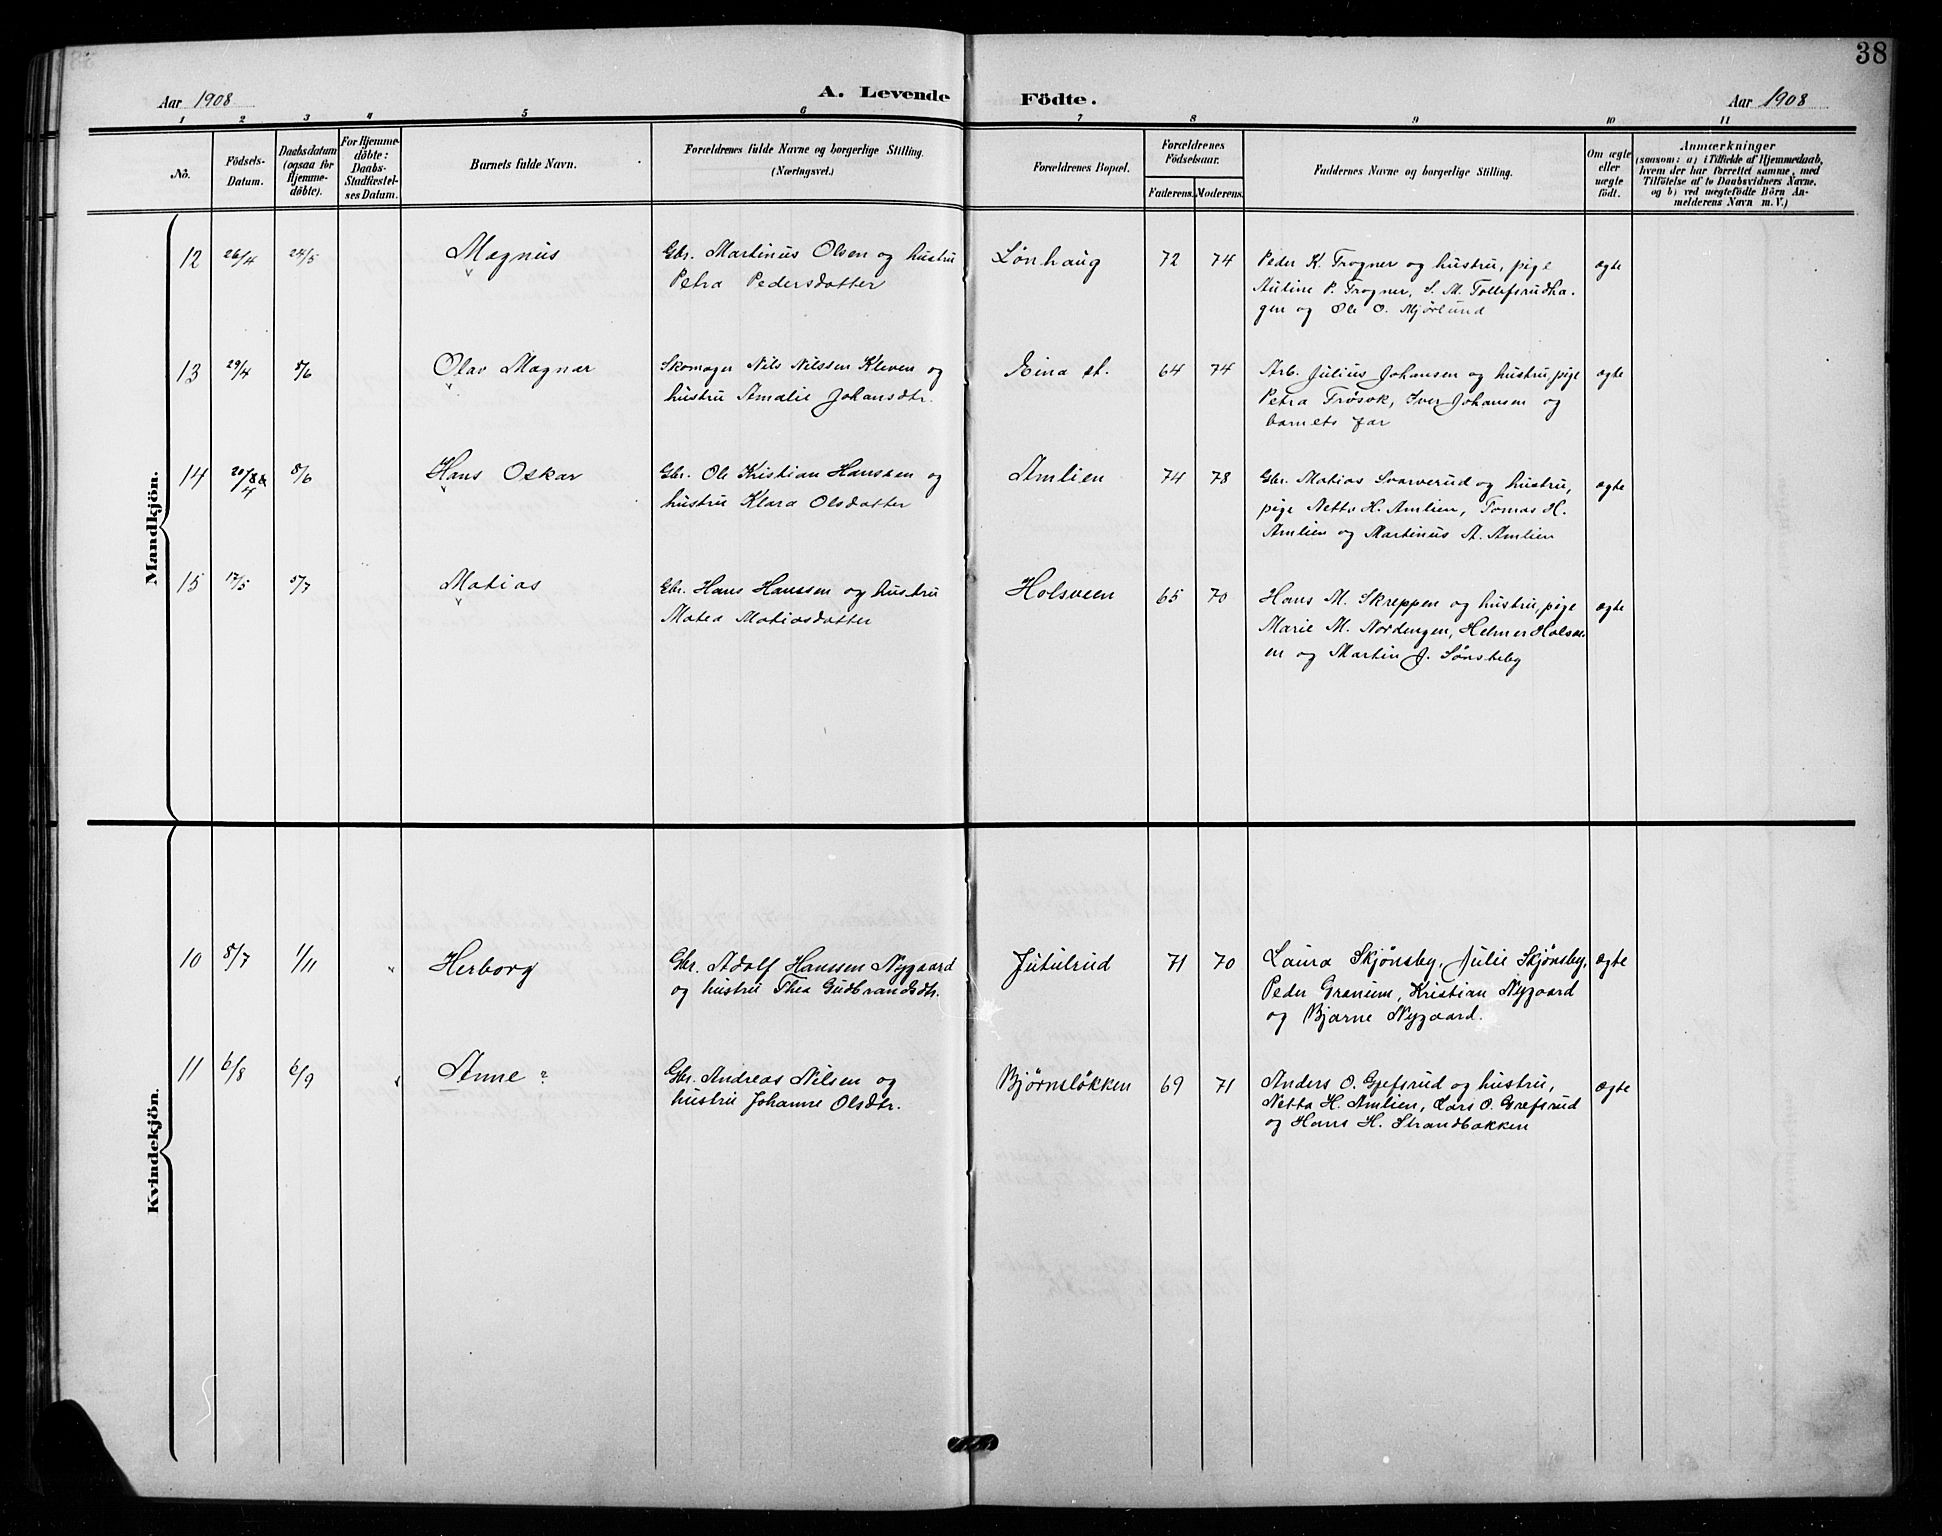 38
Aar 1908
A. Levende
Födte.
Aar 1908
1 2 3 4 5 6 7 8 9 10 11
No.
Födsels-
Datum.
Daabsdatum
(ogsaa for
Hjemme-
döbte).
For Hjemme-
döbte:
Daabs-
Stadfæstel-
ses Datum.
Barnets fulde Navn.
Forældrenes fulde Navne og borgerlige Stilling.
(Næringsvei.)
Forældrenes Bopæl.
Forældrenes
Födselsaar.
Faderens. Moderens.
Faddernes Navne og borgerlige Stilling.
Om ægte
eller
uægte
födt.
Anmærkninger
(saasom: a) i Tilfælde af Hjemmedaab,
hvem der har forrettet samme, med
Tilföielse af to Daabsvidners Navne,
og b) ved uægtefödte Börn An-
melderens Navn m. V.)
Mandkjön.
12 26/4 24/5 Magnus
Gbr. Martinus Olsen og hustru
Petra Pedersdatter
Lønhaug 72 74
Peder K. Trogner og hustru, pige
Auline P. Trogner, S. M. Tollefsrudha-
gen og Ole O. Mjørlund
ægte
13 29/4 8/6 Olav Magnar
Skomager Nils Nilssen Kleven og
hustru Amalie Johansdtr.
Eina st. 64 74
Arb. Julius Johansen og hustru, pige
Petra Trøsok, Iver Johansen og
barnets far
ægte
14 8/6 Hans Oskar
Gbr. Ole Kristian Hanssen og
hustru Klara Olsdatter
Amlien 74 78
Gbr. Matias Svarverud og hustru,
pige Netta H. Amlien, Tomas H.
Amlien og Martinus A. Amlien
ægte
15 17/5 5/7 Matias
Gbr. Hans Hanssen og hustru
Matea Matiasdatter
Holsveen 65 70
Hans M. Skreppen og hustru, pige
Marie M. Nordengen, Helmer Holsve-
en og Martin J. Sønsteby
ægte
Kvindekjön.
10 8/7 1/11 Herborg
Gbr. Adolf Hanssen Nygaard
og hustru Thea Gudbrandsdtr.
Jutulrud 71 70
Laura Skjønsby, Julie Skjønsby,
Peder Granum, Kristian Nygaard
og Bjarne Nygaard.
ægte
11 6/8 6/9 Anne
Gbr. Andreas Nilsen og
hustru Johanne Olsdtr.
Bjørnsløkken 69 71
Anders O. Grefsrud og hustru,
Netta H. Amlien, Lars O. Grefsrud
og Hans H. Strandbakken
ægte